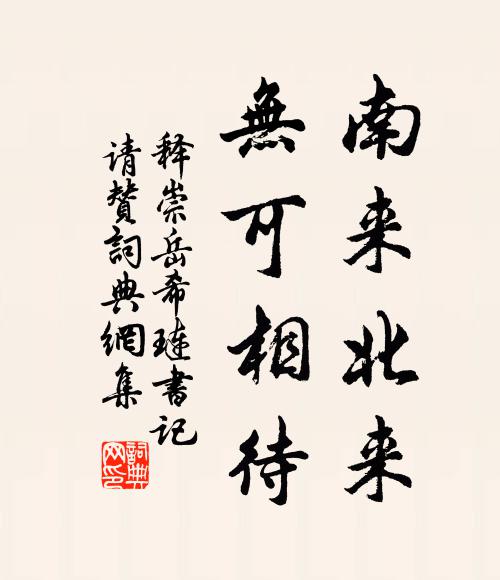 南来北来
無可相待
释崇岳希琏書记
请赞詞典網集
詞典網印